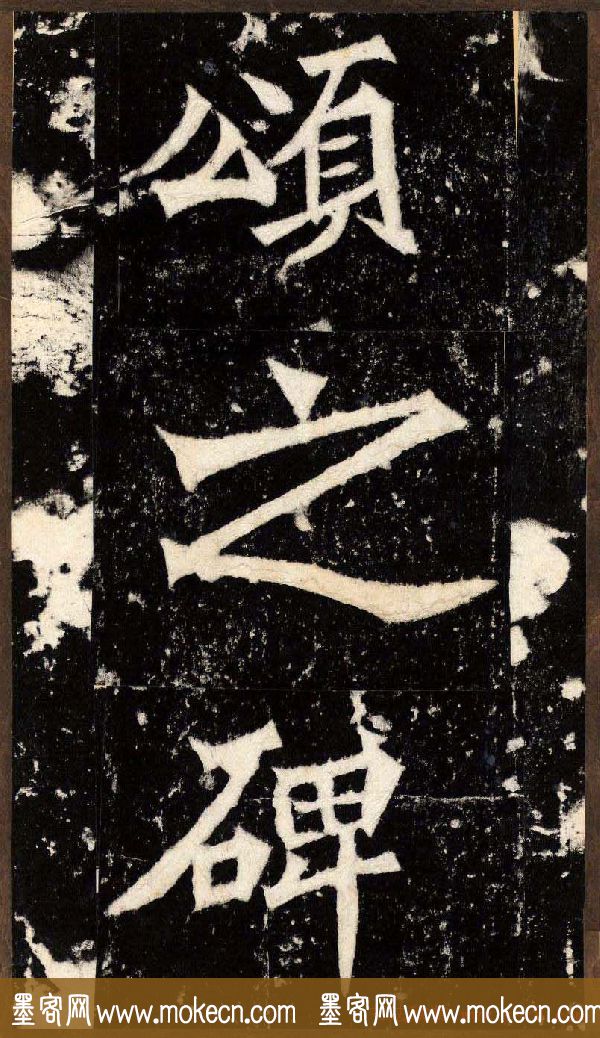 頌
之
碑
墨客网 www.mokecn.com 墨客网 www.mokecn.com